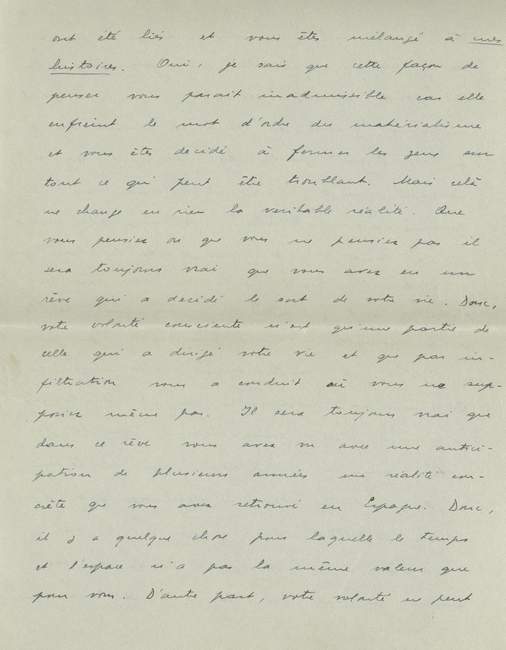 ont été liés et vous êtes mélangé à mes
histoires. Oui, je sais que cette façon de
penser vous parait inadmissible car elle
enfreint le mot d'ordre du matérialisme
et vous êtes decidé à fermer les yeux sur
tout ce qui peut être troublant. Mais celà
ne change en rien la veritable réalité. Que
vous pensiez ou que vous ne pensiez pas il
sera toujours vrai que vous avez eu un
rêve qui a decidé le sort de votre vie. Donc,
votre volonté consciente n'est qu'une partie de
celle qui a dirigé votre vie et que par in-
filtration vous a conduit où vous ne sup-
posiez même pas. Il sera toujours vrai que
dans ce rêve vous avez vu avec une antici-
pation de plusieurs années une réalité con-
crète que vous avez retrouvé en Espagne. Donc,
il y a quelque chose pour laquelle le temps
et l'espace n'a pas la même valeur que
pour vous. D'autre part, votre volonté ne peut